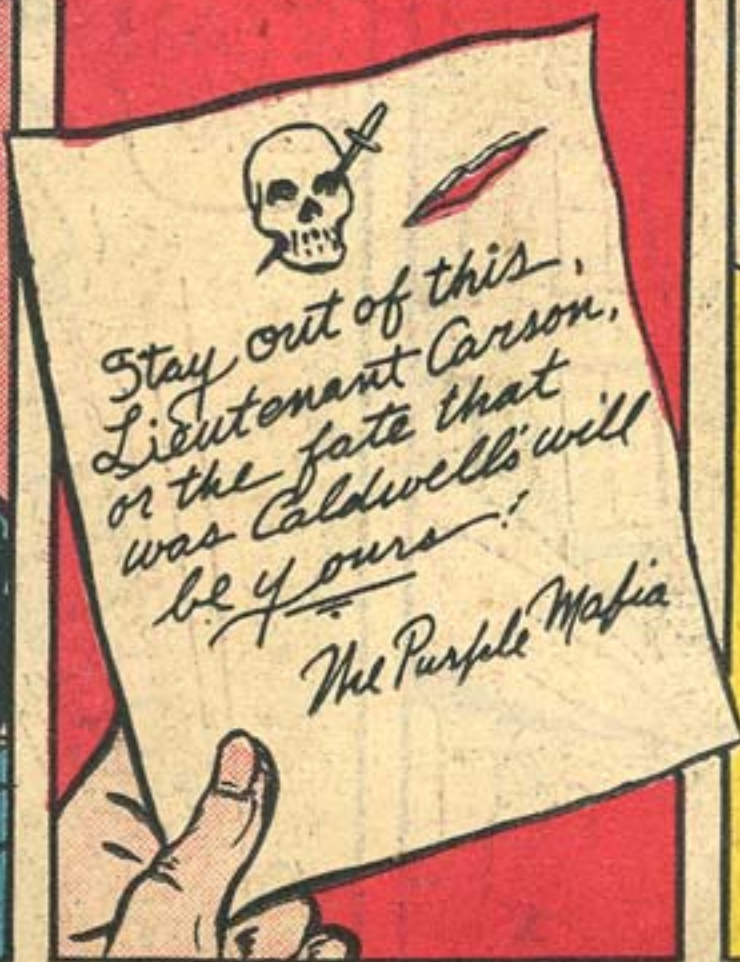 Stay out of this,
Lieutenant Carson,
or the fate that
was Caldwell's will
be yours!
The Purple Mafia